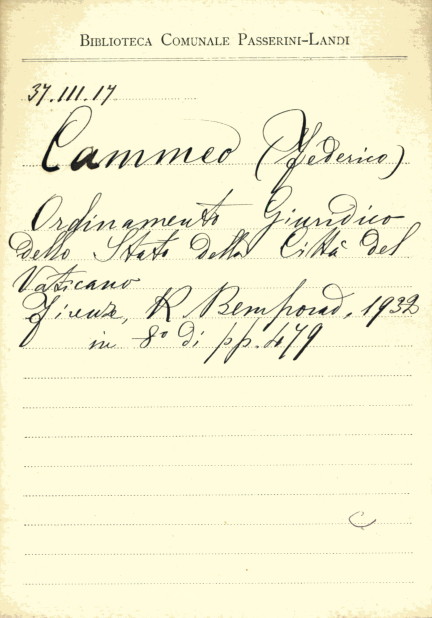 BIBLIOTECA COMUNALE PASSERINI-LANDI
37.III.17
Cammeo (Federico)
Ordinamento Giuridico
dello Stato della Città del
Vaticano
Firenze, R. Bemporad, 1932
in 8° di pp. 479
C